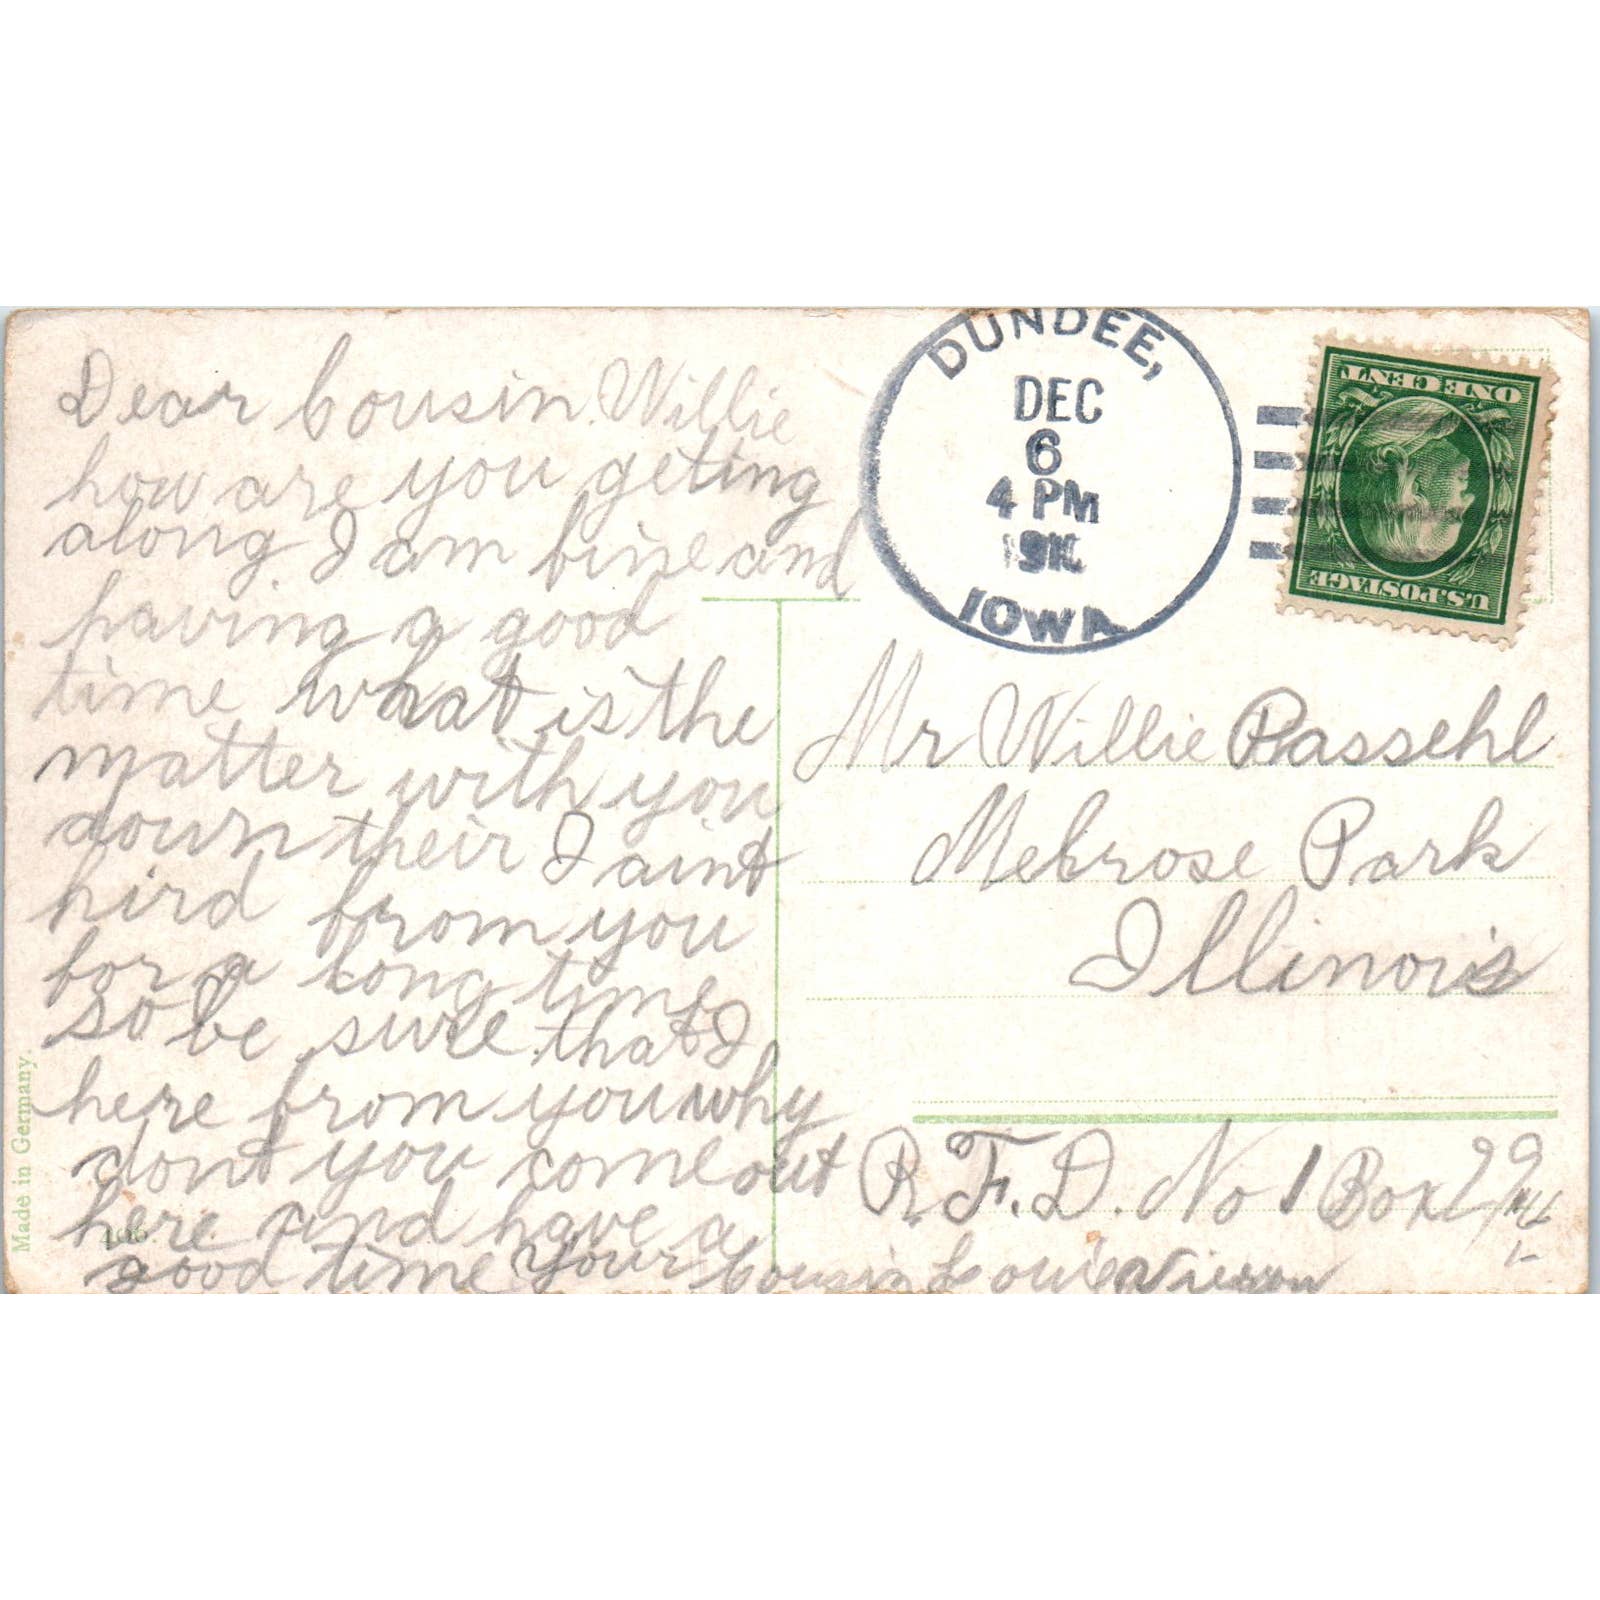 Dear Cousin Willie
how are you geting
along. I am fine and
having a good
time what is the
matter with you
down their I aint
hird from you
for a long time
so be sure that I
here from you why
dont you come out
here and have a
good time Your Cousin Louie
Made in Germany.
406
DUNDEE,
DEC
6
4 PM
IOWA
U.S. POSTAGE
ONE CENT
Mr Willie Passehl
Melrose Park
Illinois
R.F.D. No 1 Box 99